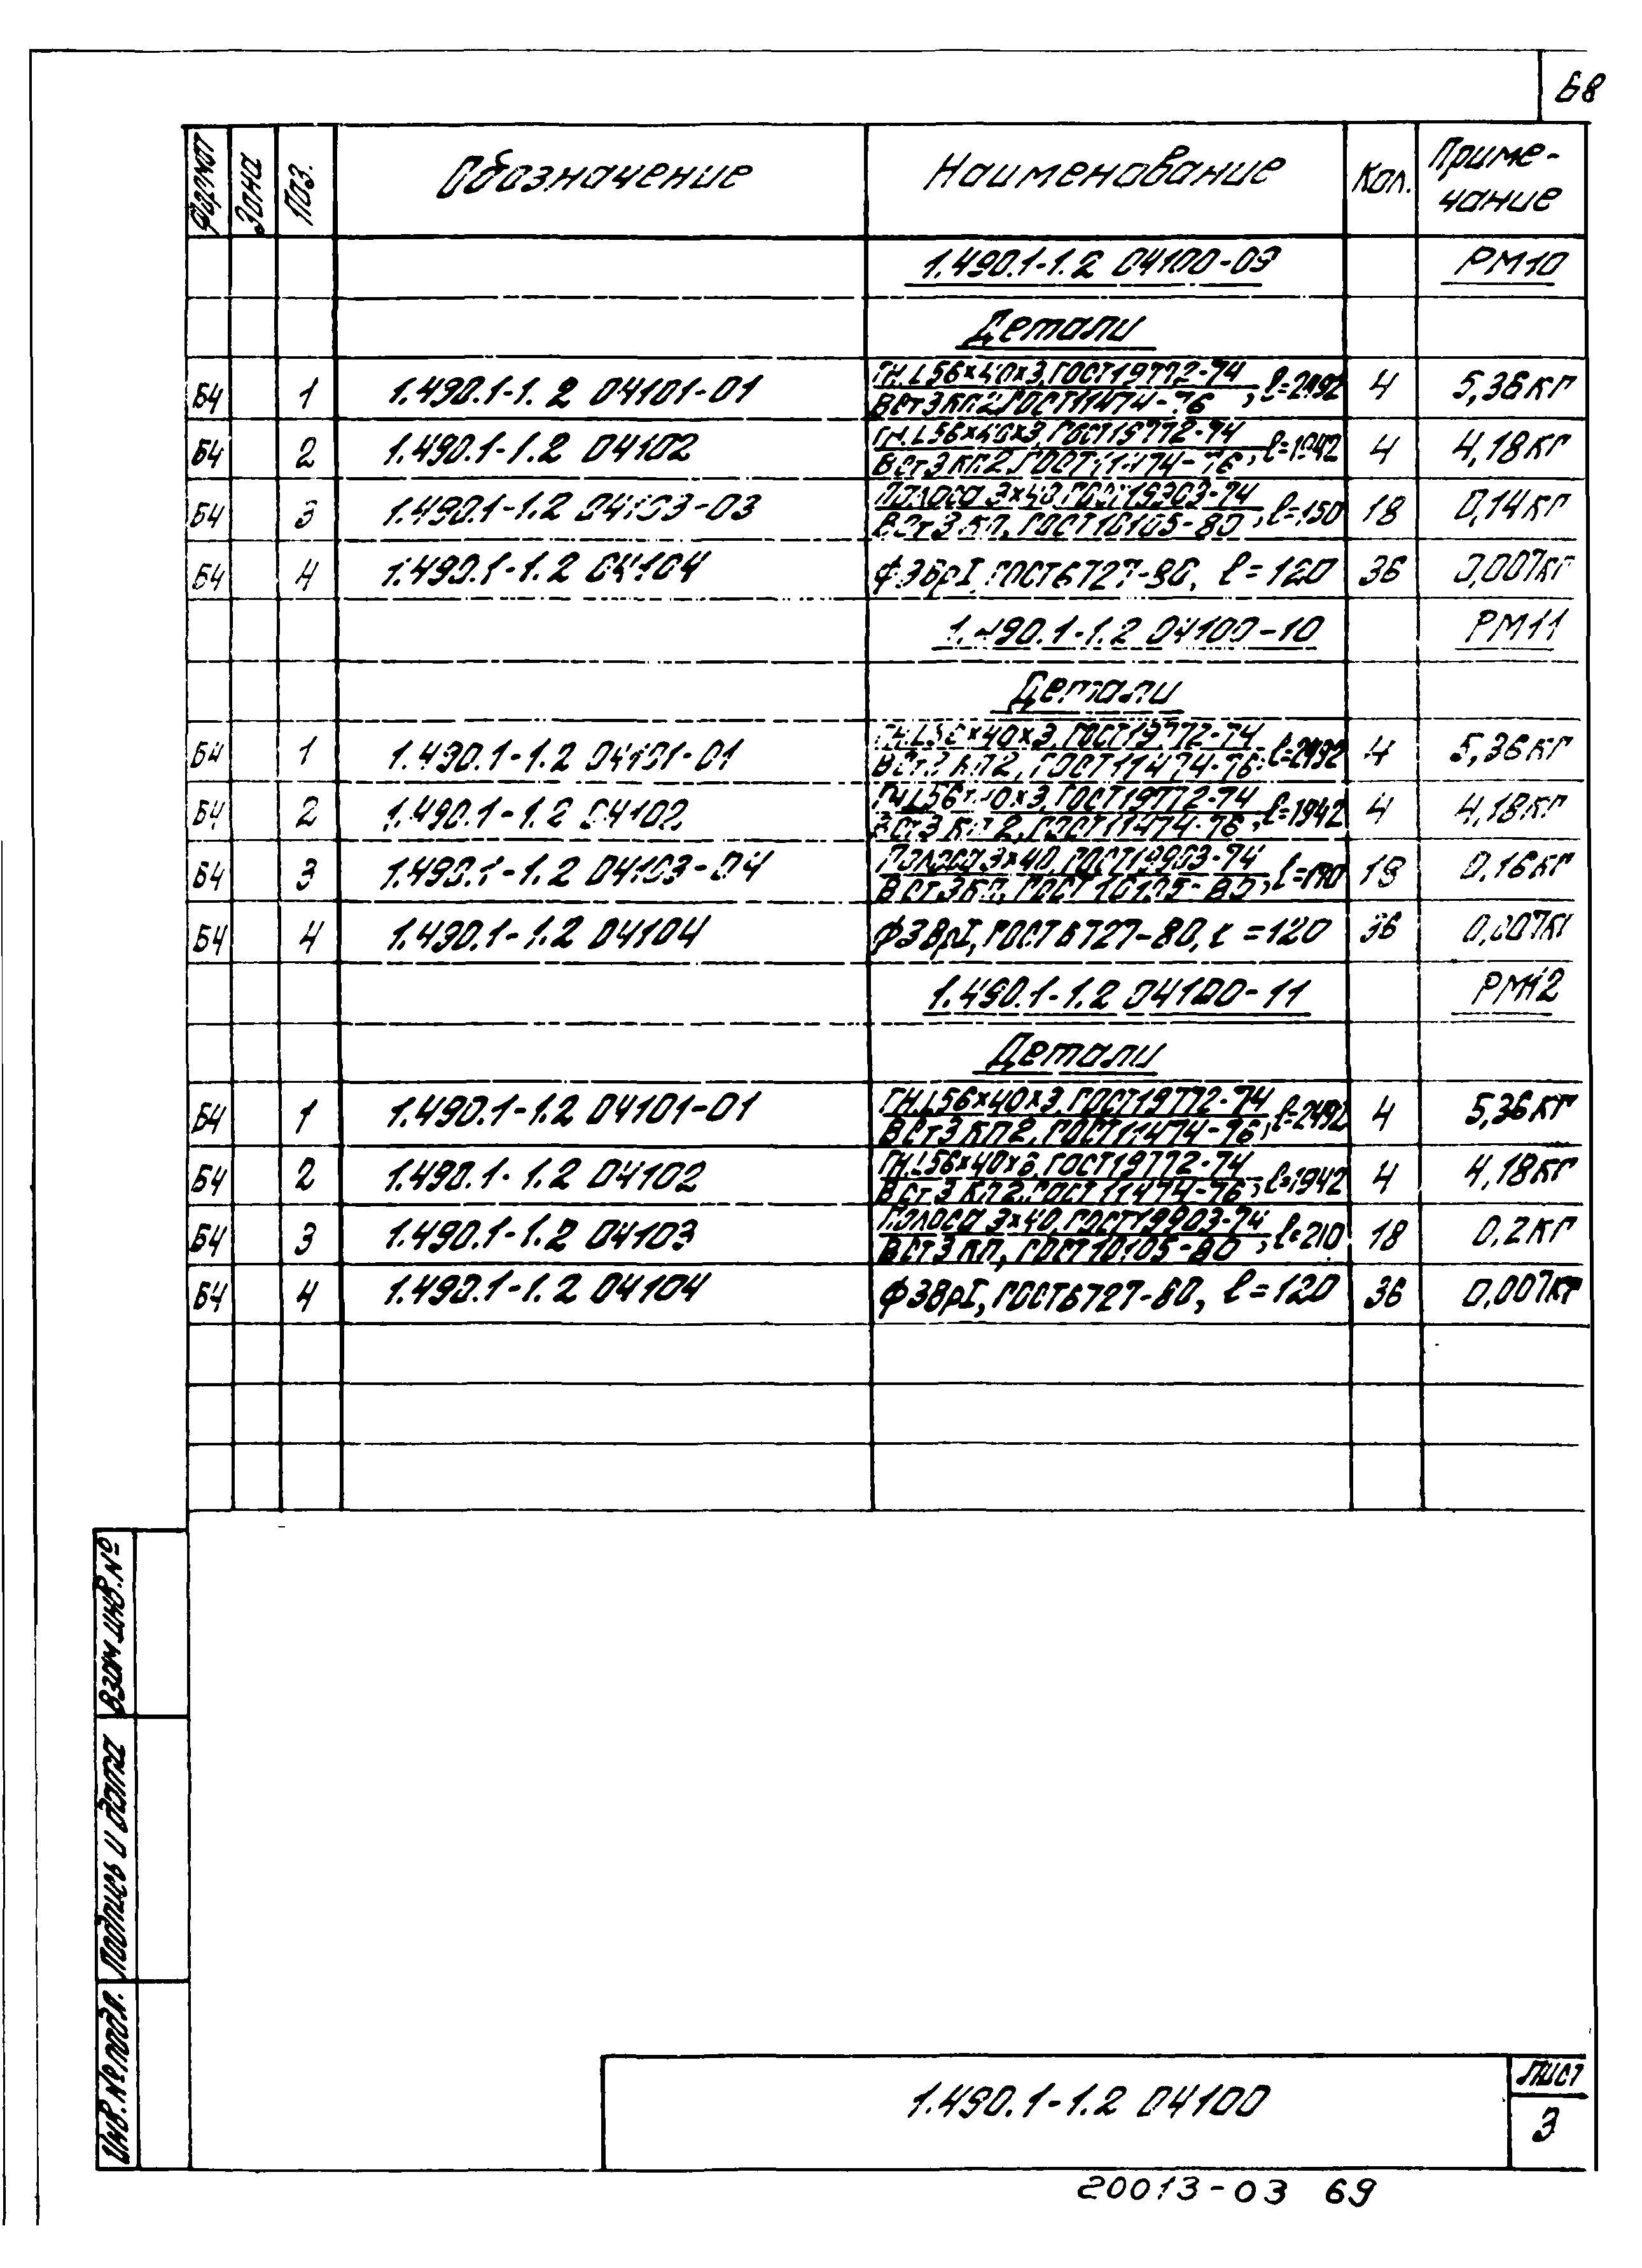 68
Формат Зона Поз. Обозначение Наименование Кол. Приме-
чание
1.490.1-1.2 04100-09 РМ10
Детали
Б4 1 1.490.1-1.2 04101-01 ГН.L56×40×3,ГОСТ19772-74 5,36кг
ВСт3кп2,ГОСТ11474-76, ℓ=2492 4
Б4 2 1.490.1-1.2 04102 ГН.L56×40×3,ГОСТ19772-74 4,18кг
ВСт3кп2,ГОСТ11474-76, ℓ=1942 4
Б4 3 1.490.1-1.2 04103-03 Полоса 3×40,ГОСТ19903-74 0,14кг
ВСт3кп,ГОСТ10105-80, ℓ=150 18
Б4 4 1.490.1-1.2 04104 ф3ВрI,ГОСТ6727-80, ℓ=120 36 0,007кг
1.490.1-1.2 04100-10 РМ11
Детали
Б4 1 1.490.1-1.2 04101-01 ГН.L56×40×3,ГОСТ19772-74 5,36кг
ВСт3кп2,ГОСТ11474-76, ℓ=2492 4
Б4 2 1.490.1-1.2 04102 ГН.L56×40×3,ГОСТ19772-74 4,18кг
ВСт3кп2,ГОСТ11474-76, ℓ=1942 4
Б4 3 1.490.1-1.2 04103-04 Полоса 3×40,ГОСТ19903-74 0,16кг
ВСт3кп,ГОСТ10105-80, ℓ=170 18
Б4 4 1.490.1-1.2 04104 ф3ВрI,ГОСТ6727-80, ℓ=120 36 0,007кг
1.490.1-1.2 04100-11 РМ12
Детали
Б4 1 1.490.1-1.2 04101-01 ГН.L56×40×3,ГОСТ19772-74 5,36кг
ВСт3кп2,ГОСТ11474-76, ℓ=2492 4
Б4 2 1.490.1-1.2 04102 ГН.L56×40×3,ГОСТ19772-74 4,18кг
ВСт3кп2,ГОСТ11474-76, ℓ=1942 4
Б4 3 1.490.1-1.2 04103 Полоса 3×40,ГОСТ19903-74 0,2кг
ВСт3кп,ГОСТ10105-80, ℓ=210 18
Б4 4 1.490.1-1.2 04104 ф3ВрI,ГОСТ6727-80, ℓ=120 36 0,007кг
Взам.инв.№
Подпись и дата
Инв.№подл.
1.490.1-1.2 04100
Лист
3
20013-03 69